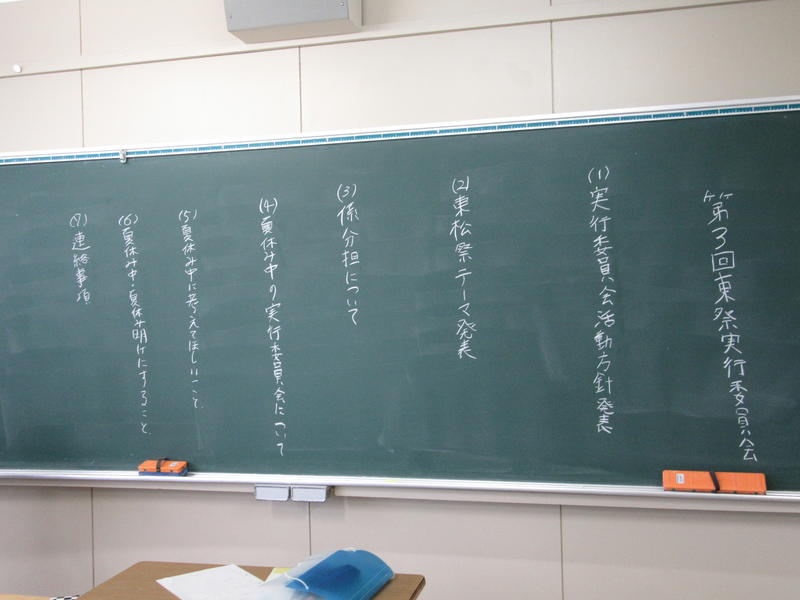 第3回東祭実行委員会
(1)実行委員会活動方針発表
(2)東松祭テーマ発表
(3)係分担について
(4)夏休み中の実行委員会について
(5)夏休み中に考えてほしいこと.
(6)夏休み中・夏休み明けにすること.
(7)連絡事項